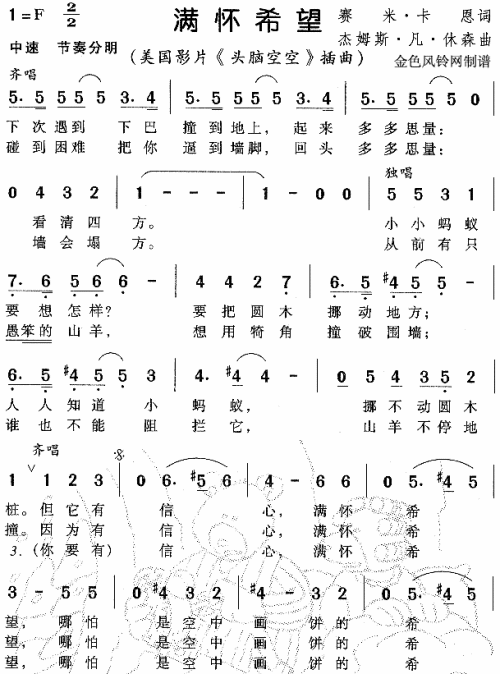 1=F 2/2
满怀希望
赛 米·卡 恩词
杰姆斯·凡·休森曲
中速 节奏分明
(美国影片《头脑空空》插曲)
金色风铃网制谱
齐唱
5. 5 5 5 5 3. 4 | 5. 5 5 5 5 3. 4 | 5. 5 5 5 5 0 |
下次遇到 下巴 撞到地上, 起来 多多思量:
碰到困难 把你 逼到墙脚, 回头 多多思量:
独唱
0 4 3 2 | 1 - - - | 1 - 0 0 | 5 5 3 1 |
看清四 方。 小小蚂蚁
墙会塌 方。 从前有只
7. 6 5 6 6 - | 4 4 2 7 | 6. 5 #4 5 5 - |
要想怎样? 要把圆木 挪动地方;
愚笨的山羊, 想用犄角 撞破围墙;
6. 5 #4 5 5 3 | 4. #4 4 - | 0 5 4 3 5 2 |
人人知道 小 蚂蚁, 挪不动圆木
谁也不能 阻 拦它, 山羊不停地
齐唱
1 1 2 3 | 0 6. #5 6 | 4 - 6 6 | 0 5. #4 5 |
桩。但它有 信 心, 满怀 希
撞。因为有 信 心, 满怀 希
3. (你要有) 信 心, 满怀 希
3 - 5 5 | 0 #4 3 2 | #4 - 3 2 | 0 5. #4 5 |
望, 哪怕 是空中 画 饼的 希
望, 哪怕 是空中 画 饼的 希
望, 哪怕 是空中 画 饼的 希